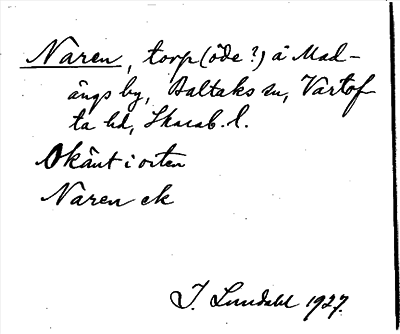 Naren, torp (öde?) å Mad-
ängs by, Baltaks sn, Vartof-
ta hd, Skarab. l.
Okänt i orten
Naren ek
I. Lundahl 1927.